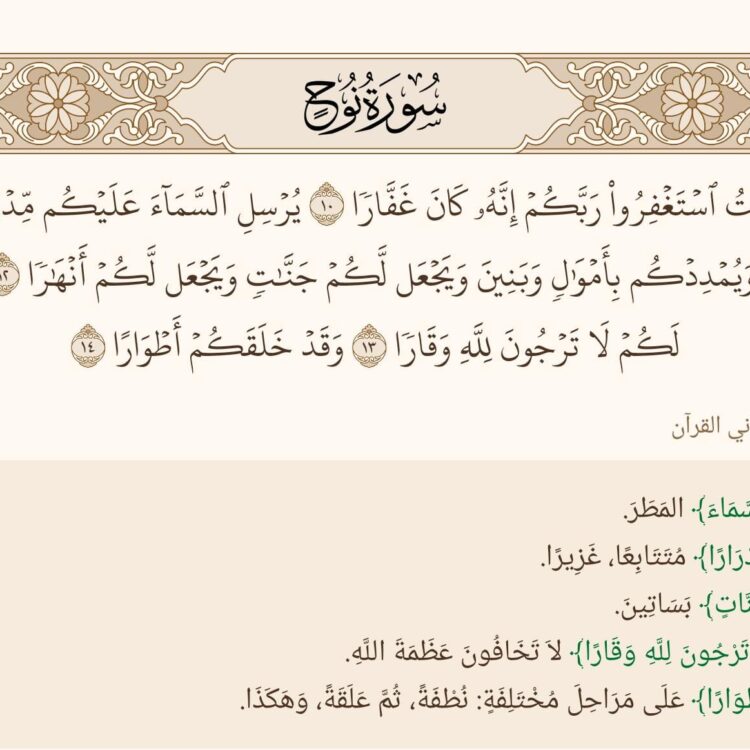 سُورَةُ نُوحٍ
ٱسۡتَغۡفِرُواْ رَبَّكُمۡ إِنَّهُۥ كَانَ غَفَّارٗا ١٠ يُرۡسِلِ ٱلسَّمَآءَ عَلَيۡكُم
وَيُمۡدِدۡكُم بِأَمۡوَٰلٖ وَبَنِينَ وَيَجۡعَل لَّكُمۡ جَنَّٰتٖ وَيَجۡعَل لَّكُمۡ أَنۡهَٰرٗا ١٢
لَكُمۡ لَا تَرۡجُونَ لِلَّهِ وَقَارٗا ١٣ وَقَدۡ خَلَقَكُمۡ أَطۡوَارًا ١٤
القرآن
المَطَرَ.
مُتَتَابِعًا، غَزِيرًا.
بَسَاتِينَ.
تَرْجُونَ لِلَّهِ وَقَارًا﴾ لاَ تَخَافُونَ عَظَمَةَ اللَّهِ.
عَلَى مَرَاحِلَ مُخْتَلِفَةٍ: نُطْفَةً، ثُمَّ عَلَقَةً، وَهَكَذَا.